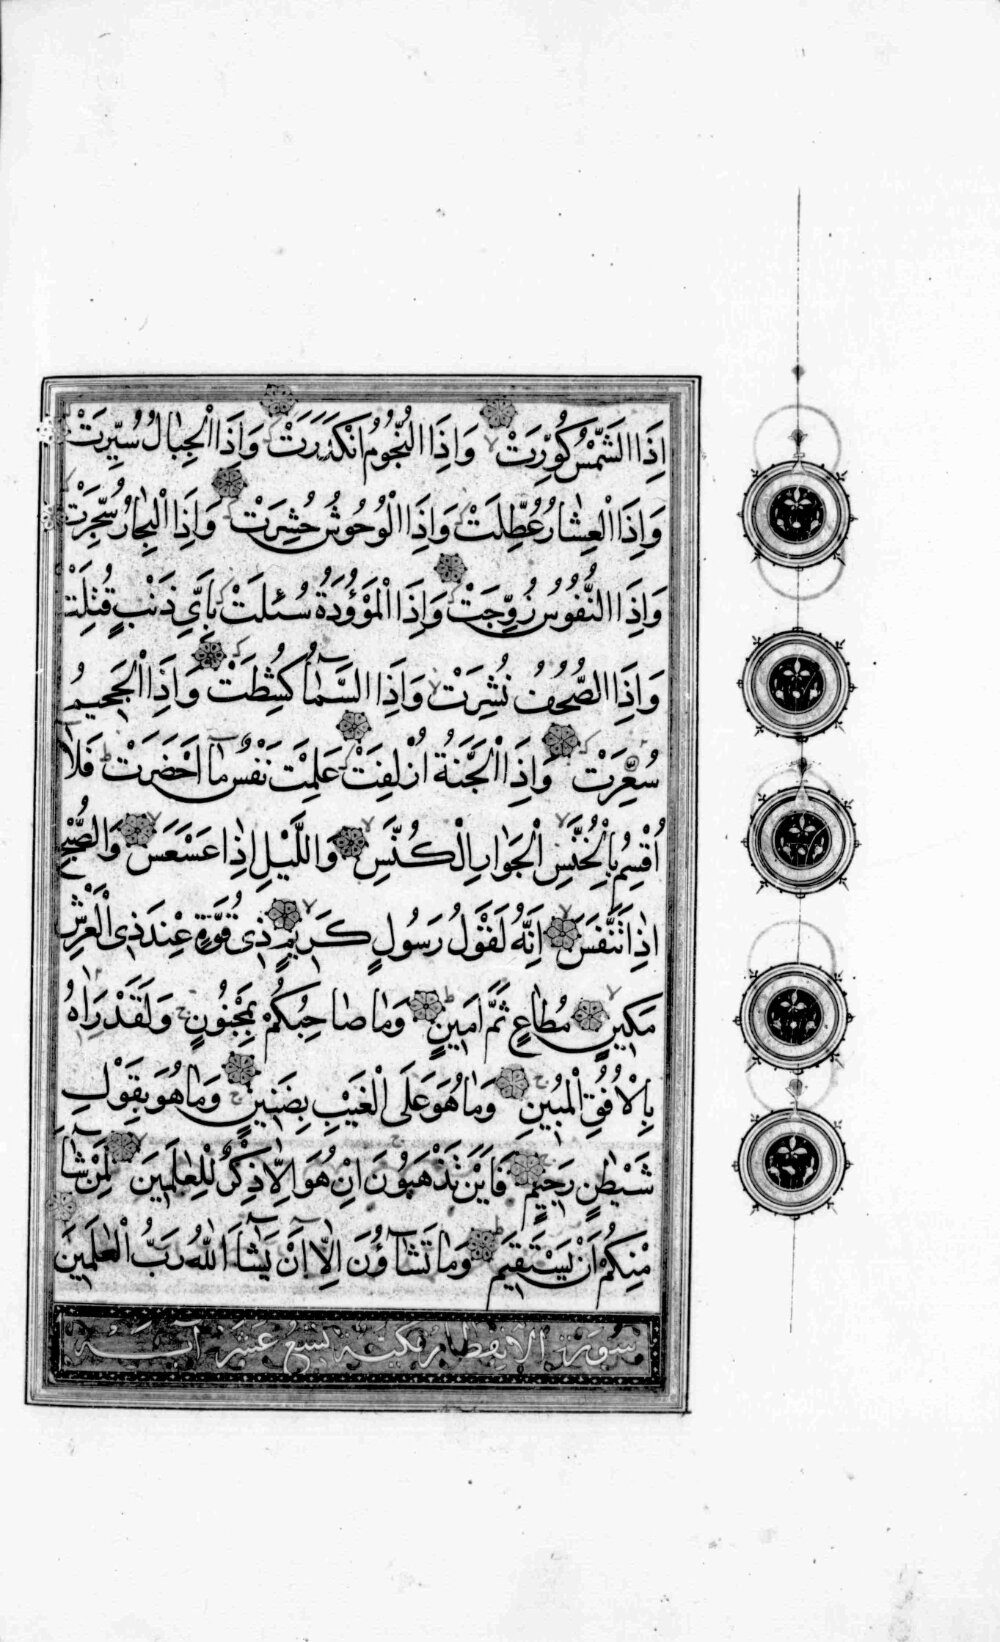 اِذَا الشَّمْسُ كُوِّرَتْ وَاِذَا النُّجُومُ انْكَدَرَتْ وَاِذَا الْجِبَالُ سُيِّرَتْ
وَاِذَا الْعِشَارُ عُطِّلَتْ وَاِذَا الْوُحُوشُ حُشِرَتْ وَاِذَا الْبِحَارُ سُجِّرَتْ
وَاِذَا النُّفُوسُ زُوِّجَتْ وَاِذَا الْمَوْؤُدَةُ سُئِلَتْ بِاَيِّ ذَنْبٍ قُتِلَتْ
وَاِذَا الصُّحُفُ نُشِرَتْ وَاِذَا السَّمَآءُ كُشِطَتْ وَاِذَا الْجَحِيمُ
سُعِّرَتْ وَاِذَا الْجَنَّةُ اُزْلِفَتْ عَلِمَتْ نَفْسٌ مَآ اَحْضَرَتْ فَلَآ
اُقْسِمُ بِالْخُنَّسِ الْجَوَارِ الْكُنَّسِ وَالَّيْلِ اِذَا عَسْعَسَ وَالصُّبْحِ
اِذَا تَنَفَّسَ اِنَّهُ لَقَوْلُ رَسُولٍ كَرِيمٍ ذِى قُوَّةٍ عِنْدَ ذِى الْعَرْشِ
مَكِينٍ مُطَاعٍ ثَمَّ اَمِينٍ وَمَا صَاحِبُكُمْ بِمَجْنُونٍ وَلَقَدْ رَاٰهُ
بِالْاُفُقِ الْمُبِينِ وَمَا هُوَ عَلَى الْغَيْبِ بِضَنِينٍ وَمَا هُوَ بِقَوْلِ
شَيْطٰنٍ رَجِيمٍ فَاَيْنَ تَذْهَبُونَ اِنْ هُوَ اِلَّا ذِكْرٌ لِلْعٰلَمِينَ لِمَنْ شَآءَ
مِنْكُمْ اَنْ يَسْتَقِيمَ وَمَا تَشَآؤُنَ اِلَّآ اَنْ يَشَآءَ اللّٰهُ رَبُّ الْعٰلَمِينَ
سُورَة الْاِنْفِطَار مَكِيَّة تِسْعُ عَشَرَ آيَة